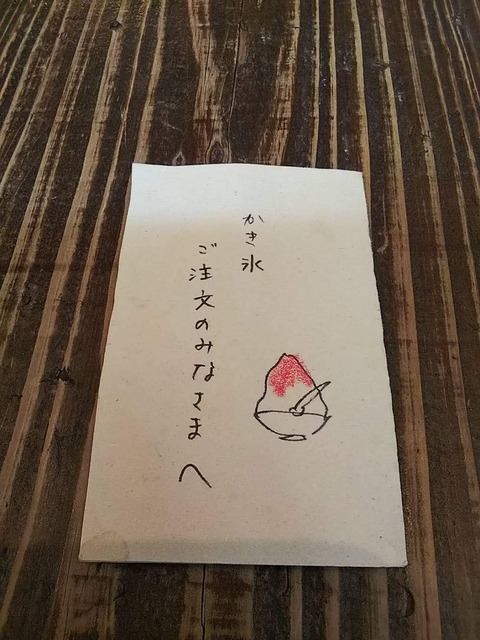 かき氷
ご注文のみなさまへ